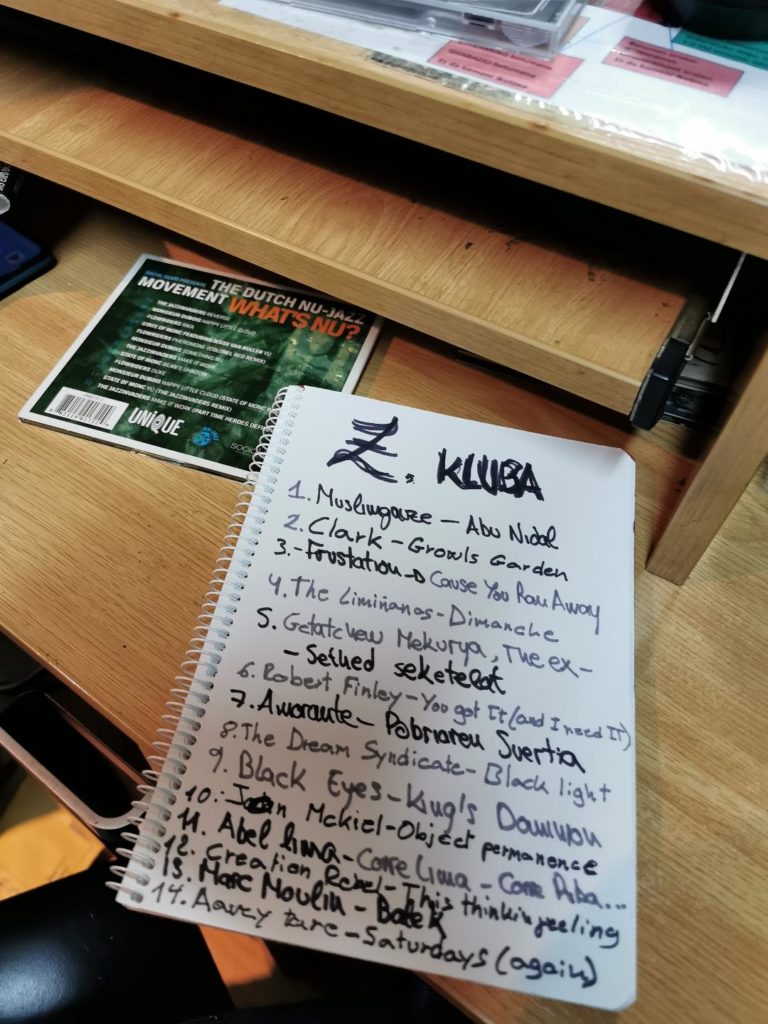 THE DUTCH NU-JAZZ
MOVEMENT WHAT'S NU?
THE JAZZINVADERS
MONSIEUR DUBOIS HAPPY LITTLE CLOUD
PLOWRIDERS
STATE OF MONC FEATURING
PLOWRIDERS PHEROMONE (COLONEL RED REMIX)
MONSIEUR DUBOIS SOMETHING
THE JAZZINVADERS MAKE IT WORK
STATE OF MONC
PLOWRIDERS
MONSIEUR DUBOIS HAPPY LITTLE CLOUD (STATE OF MONC
STATE OF MONC YU (THE JAZZINVADERS REMIX)
THE JAZZINVADERS MAKE IT WORK (PART TIME HEROES
UNIQUE
Z. KLUBA
1. Muslimgauze - Abu Nidal
2. Clark - Growls Garden
3. - Frustation → Cause You Ran Away
4. The Limiñanas - Dimanche
5. Getatchew Mekurya, The ex -
- Sethed seketelat
6. Robert Finley - You got It (and I need It)
7. Amorante - Pobriaren Suertia
8. The Dream Syndicate - Black light
9. Black Eyes - King's Dominion
10. Jon Mckiel - Object permanence
11. Abel lima - Corre Lima - Corre Riba...
12. Creation Rebel - This thinkin feeling
13. Marc Moulin - Balek
14. Aavey tare - Saturdays (again)